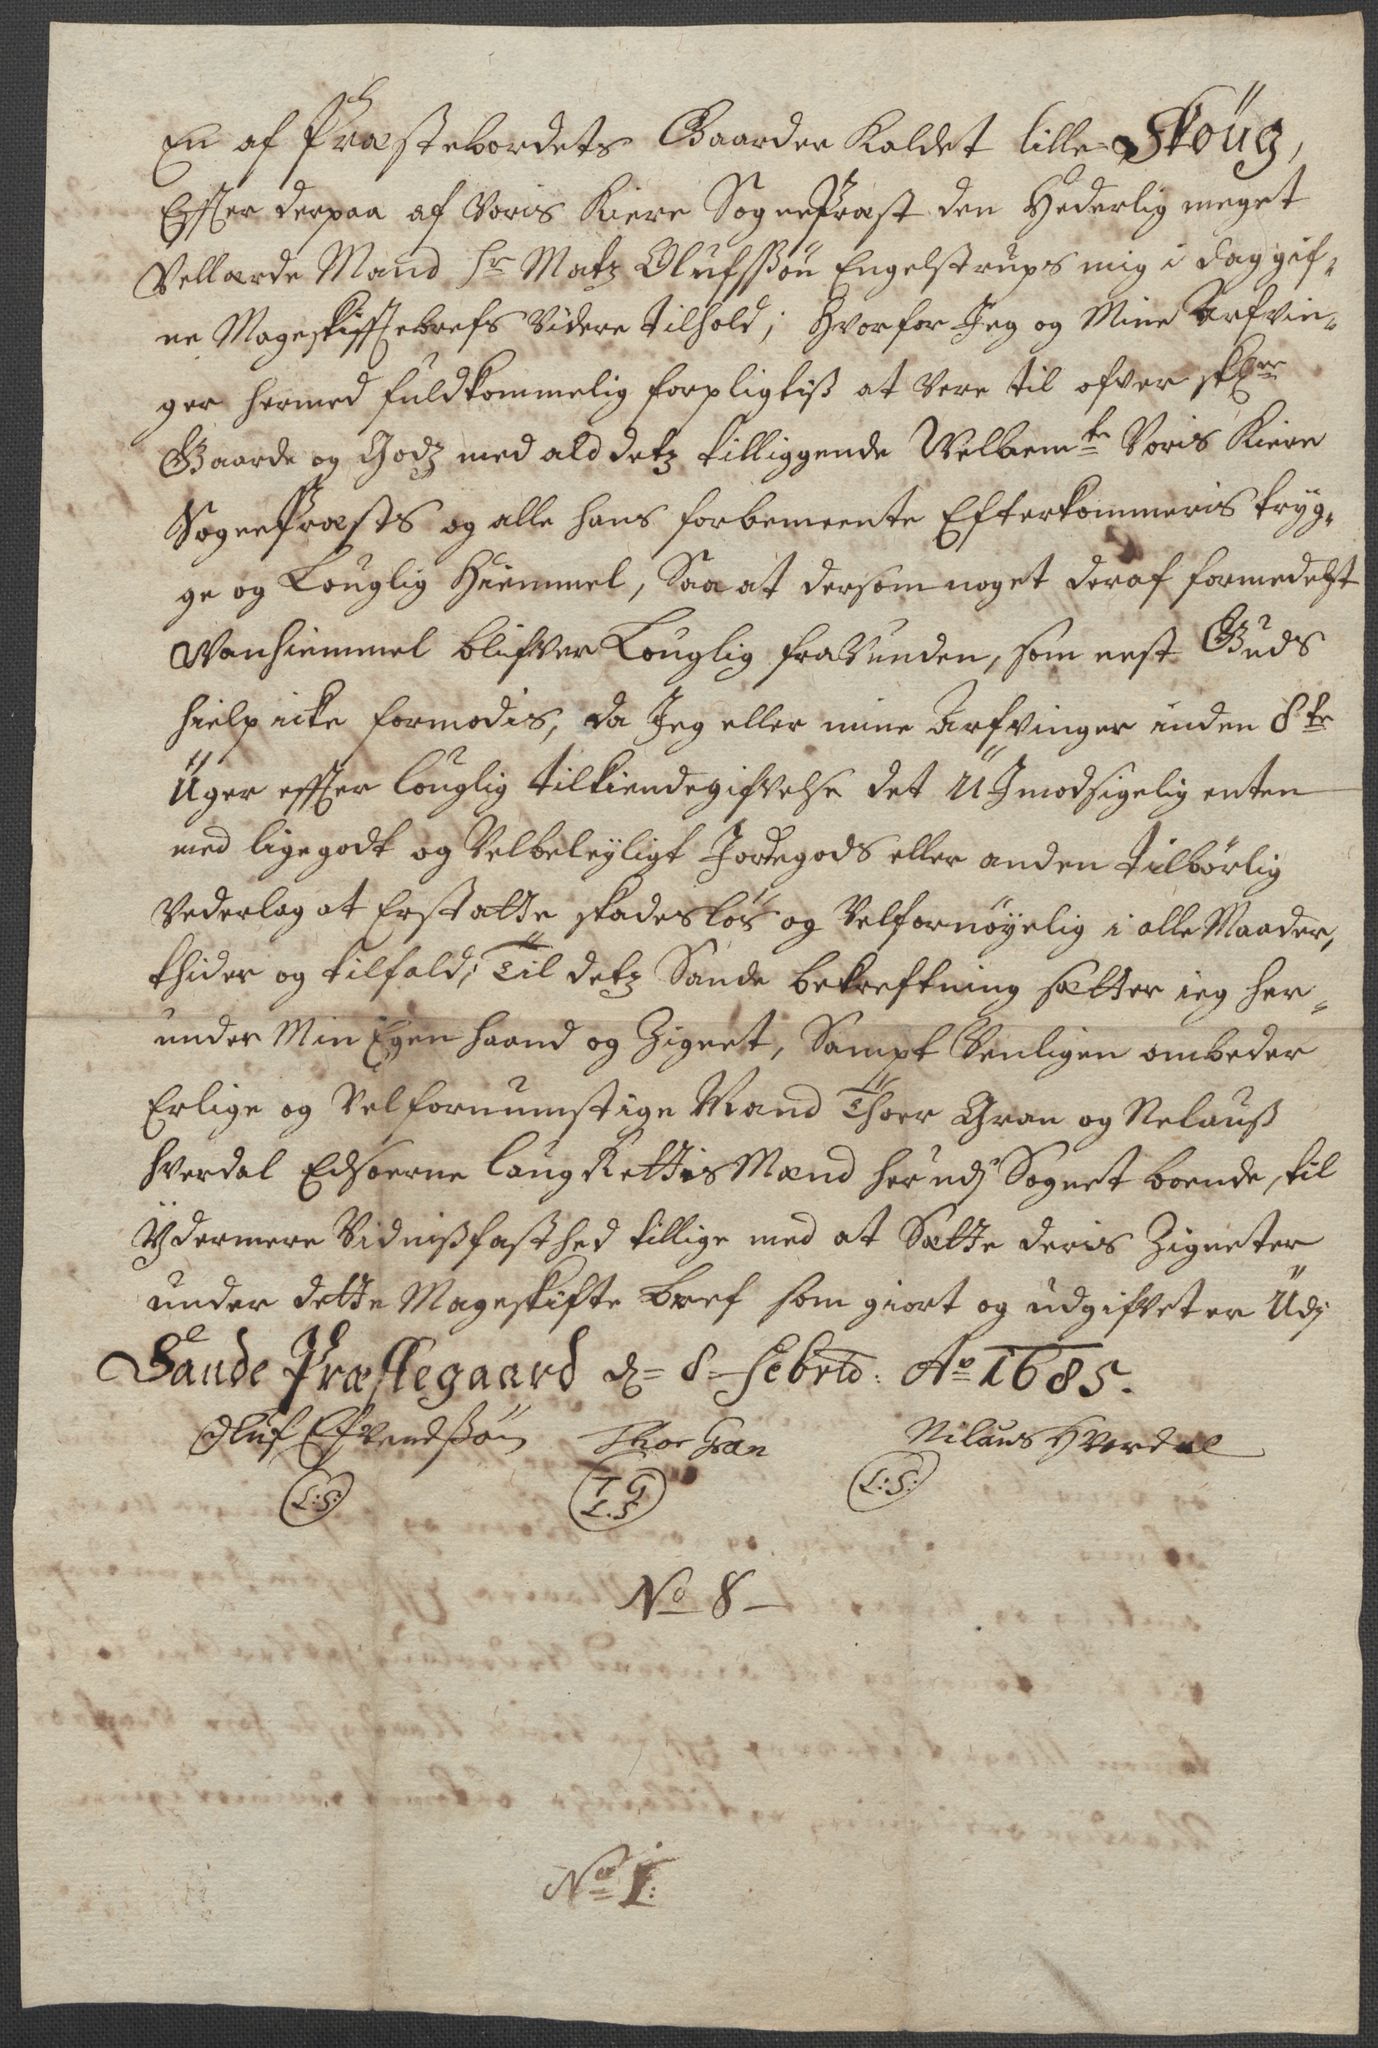 En af Præstebordets Gaarder Kaldet lille Skoüg,
Effter derpaa af Voris Kiere SognePræst den Hederlig meget
Vellærde Mand Hr Matz Olufssøn Engelstrups mig i dag gif-
ne Mageskifftebrefs Videre tilhold; Hvorfor Jeg og Mine Arfvin-
ger hermed fuldkommelig forpligtiß at Vere til ofver skr
Gaarde og Godz med ald detz tilliggende Velbemte Voris Kiere
SognePræsts og alle hans forbemeente Efterkommeris tryg-
ge og Louglig Hiemmel, Saa at dersom noget deraf formedelst
Vanhiemmel blifver Louglig fraVunden, som nest Guds
hielp icke formodis, da Jeg eller mine Arfvinger inden 8te
Üger effter louglig tilkiendegifvelse det UJmodsigelig enten
med ligegodt og Velbeleyligt Jordegods eller anden tilbörlig
Vederlag at Erstatte skadeslös og Velfornöyelig i alle Maader,
thider og tilfald; Til detz Sande bekreftning sætter ieg her-
under Min Egen haand og Zignet, Sampt Venligen ombeder
Erlige og Velfornumstige Mand Thoer Gran og Nelauß
Hverdal Edsoerne laugRettis Mænd her udj Sognet boende, til
Ydermere Vidnißfasthed tillige med at Sætte deris Zigneter
under dette Mageskifte bref som giort og udgifvet er Üdj
Sande Præstegaard d= 8 Febrio: Ao 1685.
Oluf Efvendßön Thor Gran Nilaus Hverdal
L:S: T G L.S L:S:
No 8
No 1: